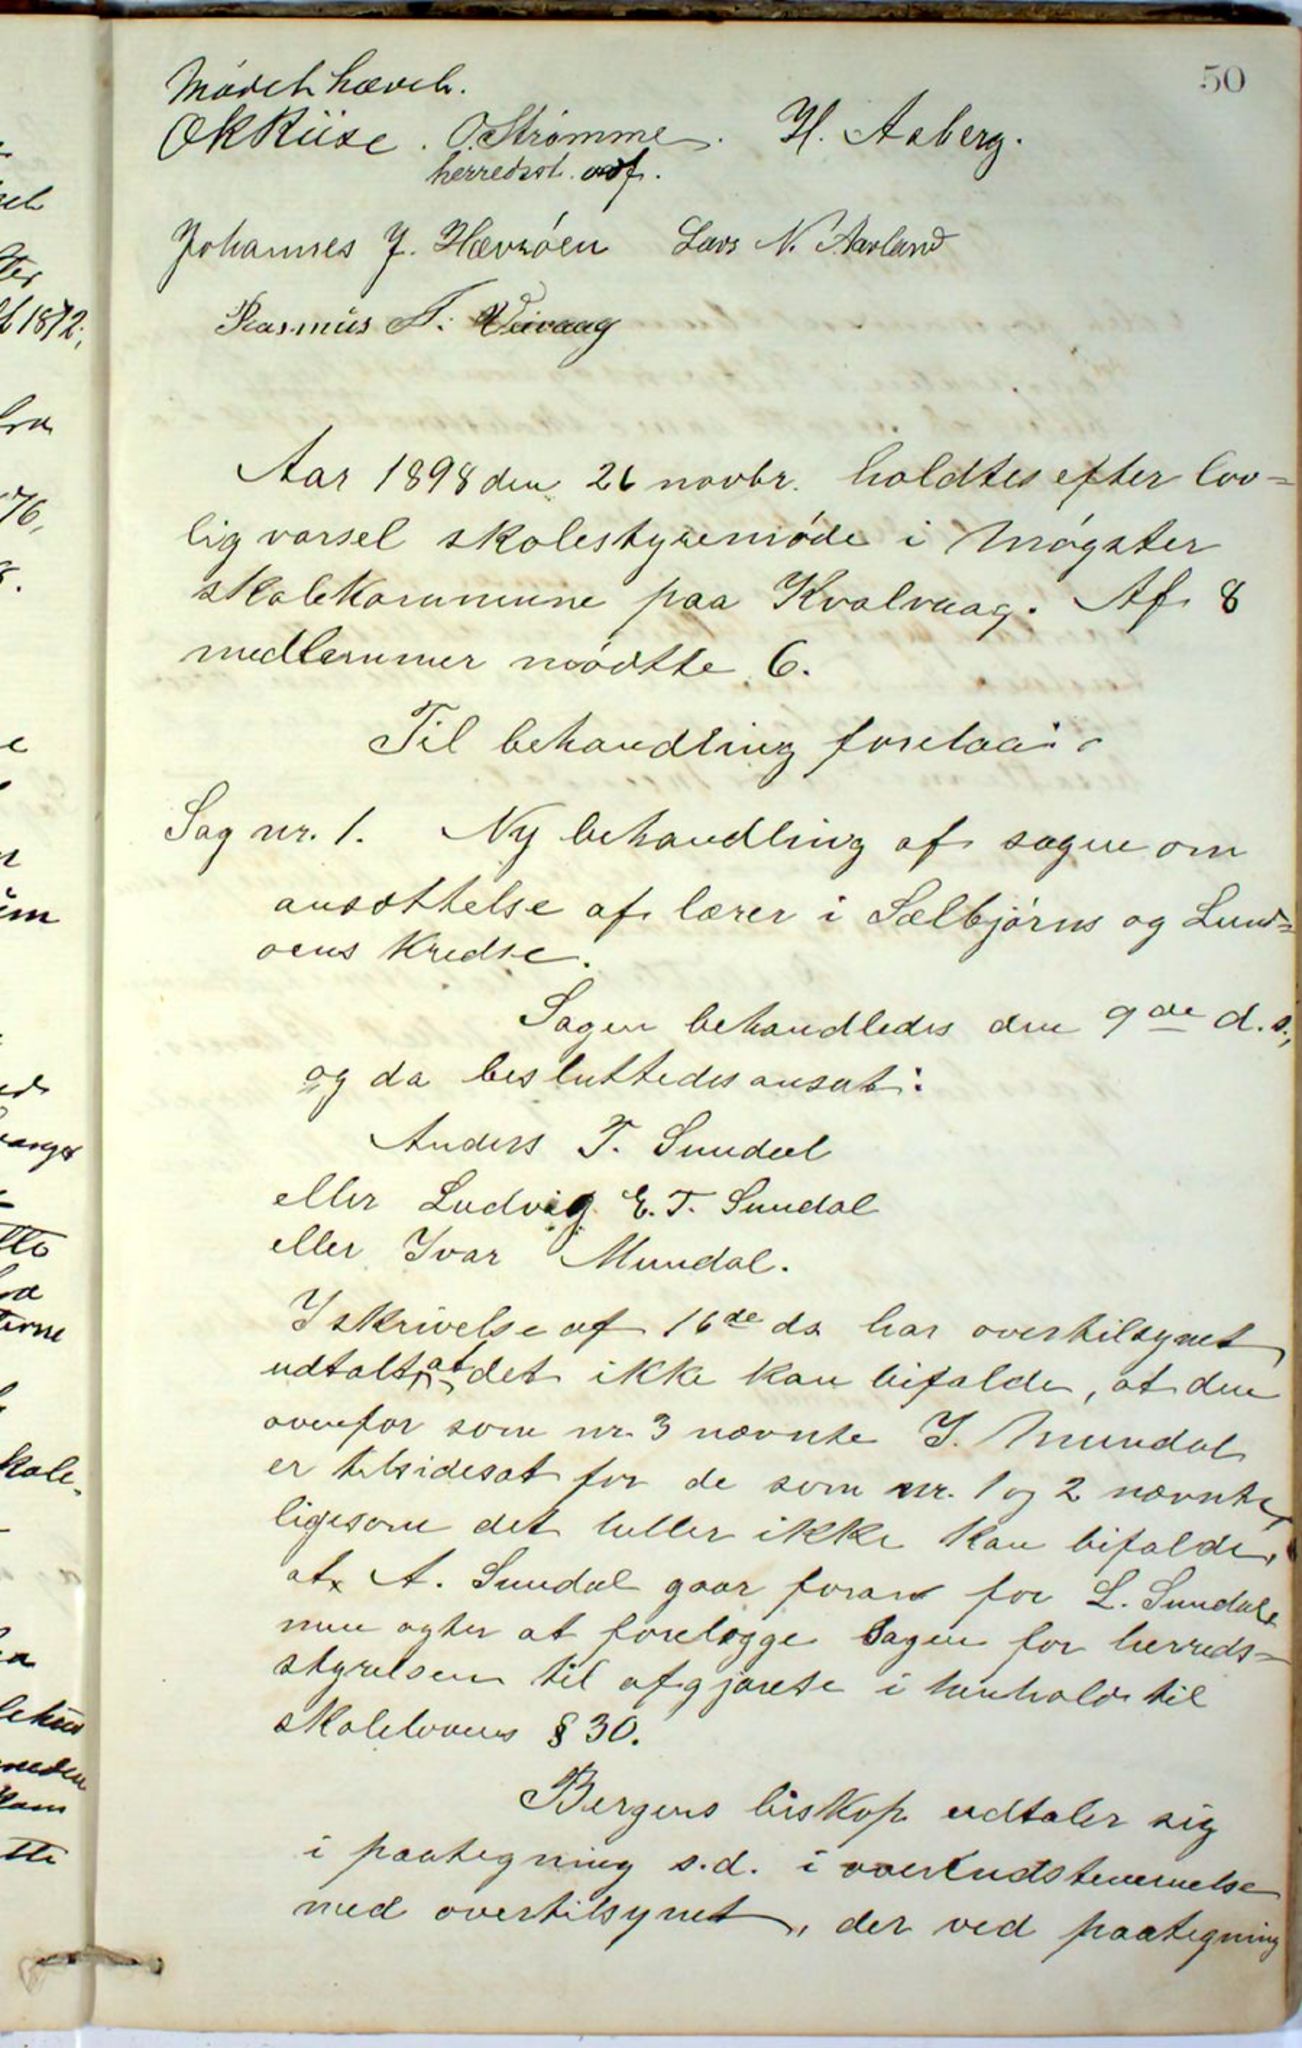 50
Mødet hævet.
OK Riise. O. Strømme. H. Aaberg.
herredsst. ordf.
Johannes J. Hævrøen Lars N. Aarland
Rasmus T. Veivaag
Aar 1898 den 26 novbr. holdtes efter lov=
lig varsel skolestyremøde i Møgster
skolekommune paa Kvalvaag. Af 8
medlemmer mødtte 6.
Til behandling forelaa:
Sag nr. 1. Ny behandling af sagen om
ansættelse af lærer i Sælbjørns og Lund=
øens Kredse.
Sagen behandledes den 9de d.s.,
og da besluttedes ansat:
Anders T. Sundal
eller Ludvig E. T. Sundal
eller Ivar Mundal.
I skrivelse af 16de ds har overtilsynet
udtalt, at det ikke kan bifalde, at den
ovenfor som nr. 3 nævnte I. Mundal
er tilsidesat for de som nr. 1 og 2 nævnte,
ligesom det heller ikke kan bifalde,
at A. Sundal gaar foran for L. Sundal
men agter at forelægge sagen for herreds=
styrelsen til afgjørelse i henhold til
skolelovens § 30.
Bergens biskop udtaler sig
i paategning s.d. i overensstemmelse
med overtilsynet, der ved paategning